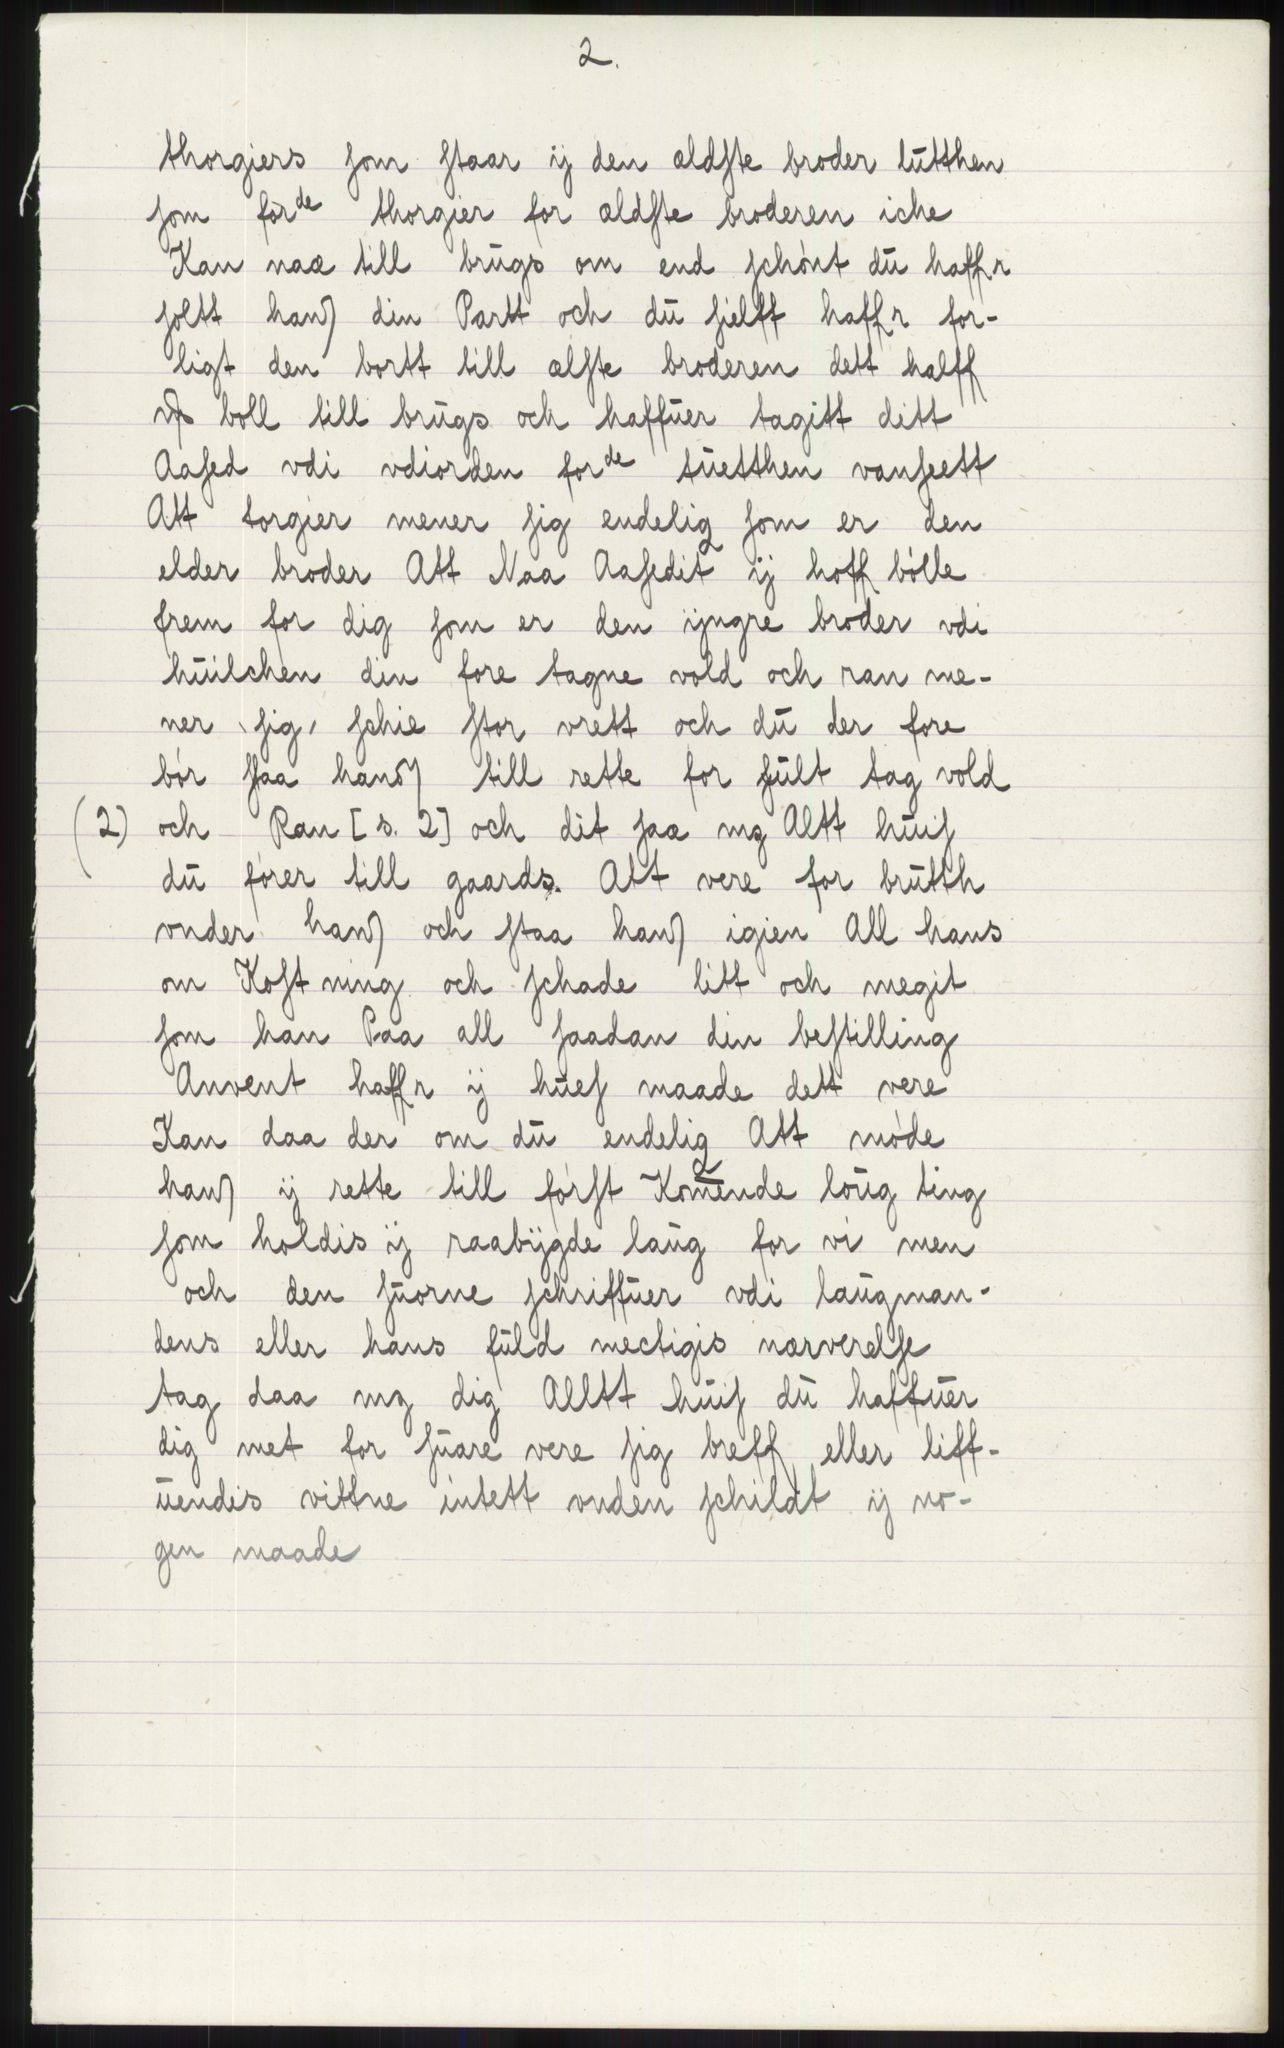 2.
thorgiers som staar ij den ældste broder lutthen
som forde thorgier for ældste broderen iche
Kan naæ till brugs om end schönt du haffr
soltt hand din Partt och du sielff haffr for-
ligt den bortt till ælste broderen dett halff
boll till brugs och haffuer tagitt ditt
Aased vdi vdiorden forde tuetthen vanseett
Att torgier mener sig endelig som er den
elder broder Att Naa Aasedit ij hoff bölle
frem for dig som er den ijngre broder vdi
huilchen din fore tagne vold och ran me-
ner sig, schie stor vrett och du der fore
bör staa hand till rette for fult tag vold
(2) och Ran [s. 2] och dit saæ mz Altt huis
du förer till gaards. Att vere for brutth
vnder hand och staa hand igien All hans
om Kostning och schade litt och megit
som han Paa all saadan din bestilling
Anvent haffr ij hues maade dett vere
Kan daa der om du endelig Att möde
hand ij rette till först Komende loug ting
som holdis ij raabijgde laug for vi men
och den suorne schriffuer vdi laugman-
dens eller hans fuld mectigis nærverelse
tag daa mz dig Alltt huis du haffuer
dig met for suare vere sig breff eller liff-
uendis vittne intett vnden schildt ij no-
gen maade